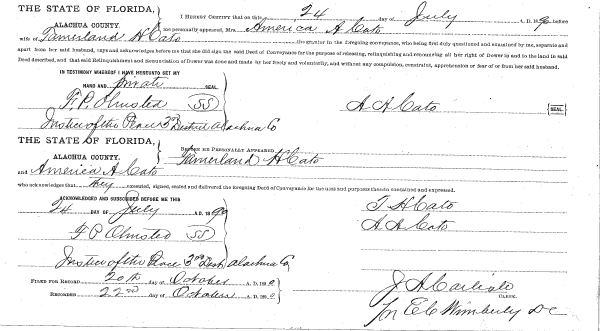 THE STATE OF FLORIDA,
ALACHUA COUNTY.
I HEREBY CERTIFY that on this 24 day of July A. D. 189 before
me personally appeared, Mrs. America A Cato
wife of Tamerland H Cato the grantor in the foregoing conveyance, who being first duly questioned and examined by me, separate and
apart from her said husband, says and acknowledges before me that she did sign the said Deed of Conveyance for the purpose of releasing, relinquishing and renouncing all her right of Dower in and to the land in said
Deed described, and that said Relinquishment and Renunciation of Dower was done and made by her freely and voluntarily, and without any compulsion, constraint, apprehension or fear of or from her said husband.
IN TESTIMONY WHEREOF I HAVE HEREUNTO SET MY
HAND AND private SEAL
F. P. Olmsted SS
A A Cato SEAL
Justice of the Peace 3rd District Alachua Co
THE STATE OF FLORIDA,
ALACHUA COUNTY.
BEFORE ME PERSONALLY APPEARED
Tamerland H Cato
and America A Cato
who acknowledges that they executed, signed, sealed and delivered the foregoing Deed of Conveyance for the uses and purposes therein contained and expressed.
ACKNOWLEDGED AND SUBSCRIBED BEFORE ME THIS
24 DAY OF July A. D. 1890
T H Cato
A A Cato
F P Olmsted SS
Justice of the Peace 3rd Dist Alachua Co
FILED FOR RECORD 20th day of October A. D. 1890
RECORDED 22nd day of October A. D. 1890
J A Carlisle
CLERK.
Pr E C Wimberly D C